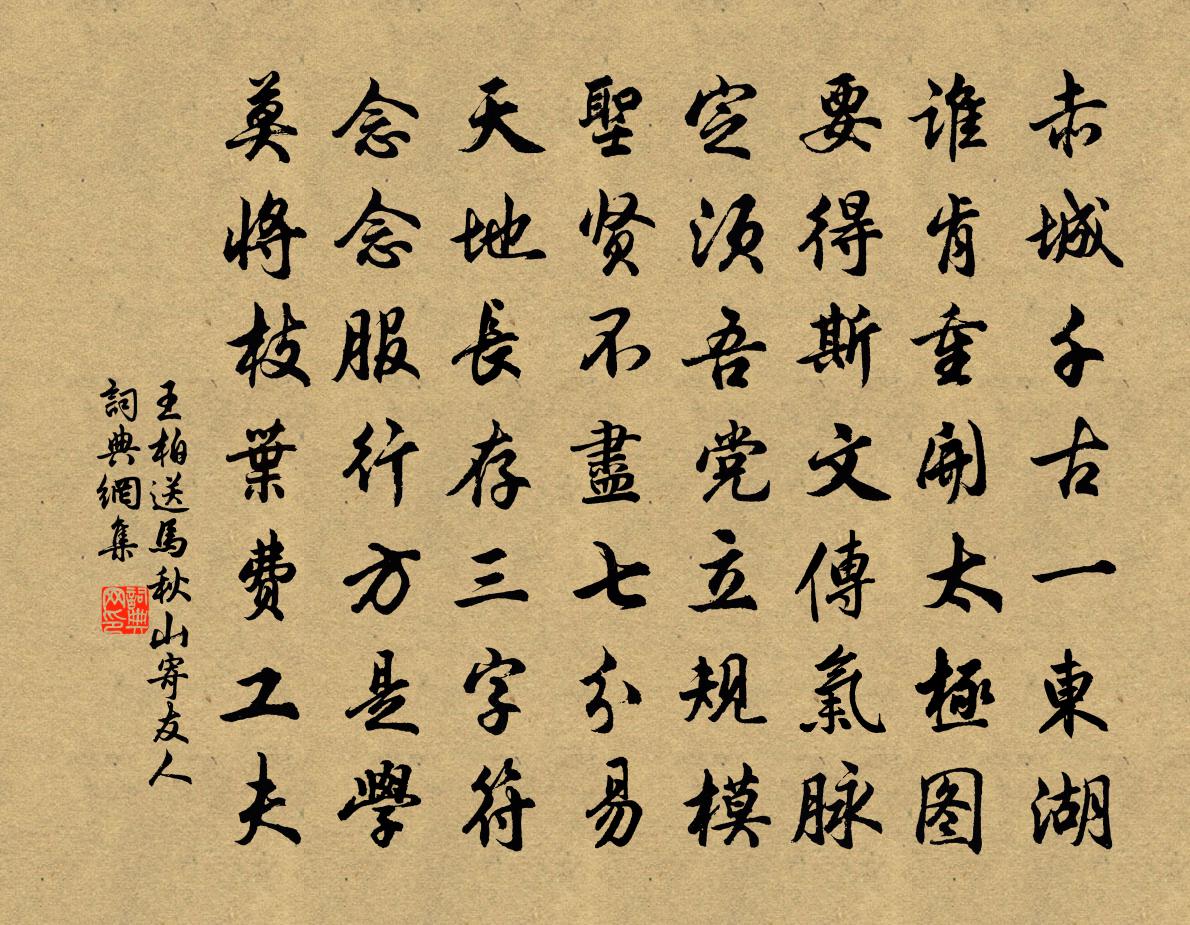 赤城千古一東湖
谁肯重開太極图
要得斯文傳氣脉
定须吾党立規模
聖贤不盡七分易
天地長存三字符
念念服行方是學
莫將枝葉費工夫
王柏送馬秋山寄友人
詞典網集
詞典网印